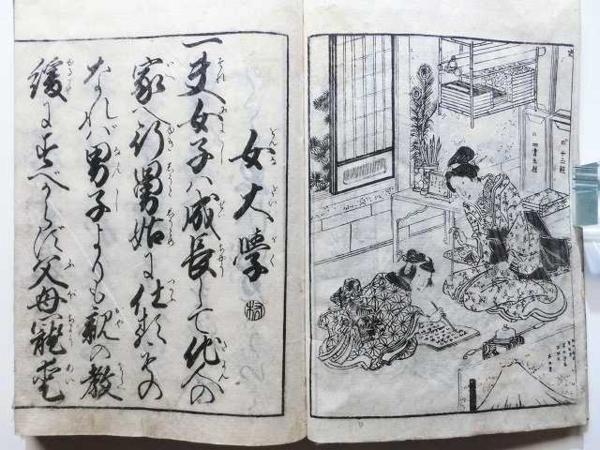 十三經
女大學
一夫女子ハ成長して他人の
家へ行舅姑に仕るもの
なれバ男子よりも親の教
緩にすべからず父母寵愛